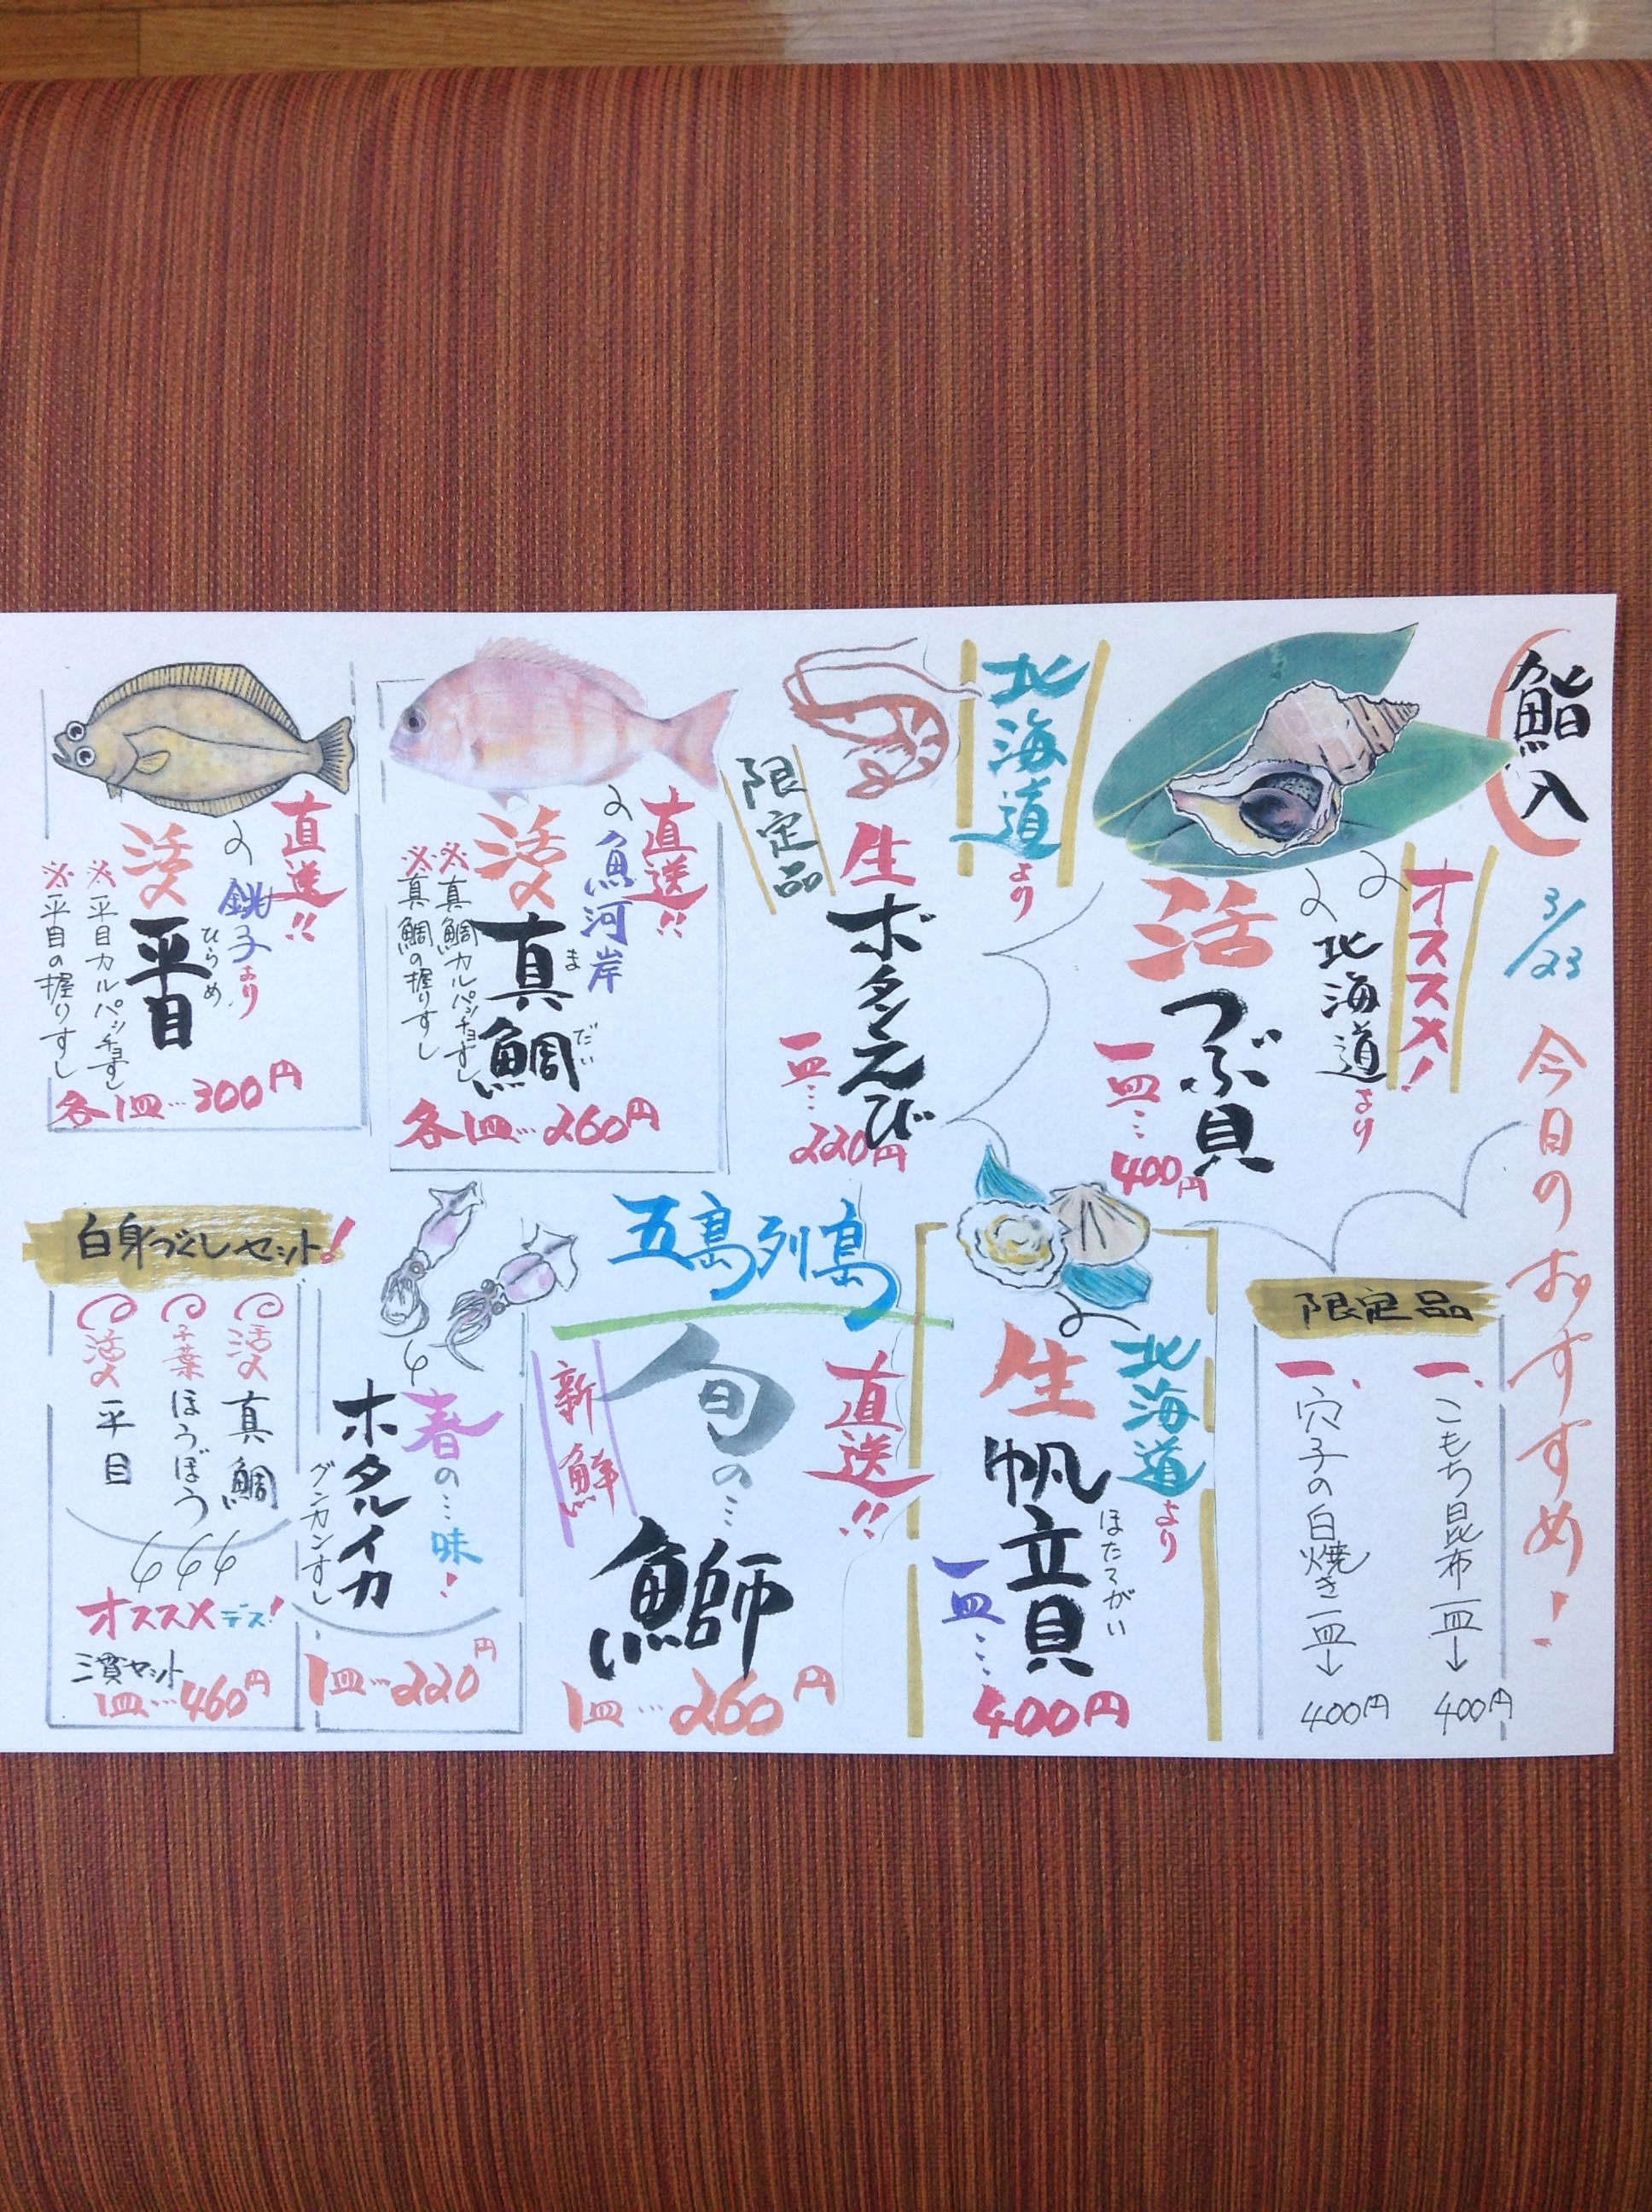 鮨入
3/23
今日のおすすめ!
オススメ!
北海道より
活
つぶ貝
一皿…
400円
北海道より
生
ボタンえび
限定品
一皿…
220円
直送!!
魚河岸
活〆
真鯛
まだい
※真鯛カルパッチョすし
※真鯛の握りすし
各1皿…260円
直送!!
銚子より
活〆
平目
ひらめ
※平目カルパッチョすし
※平目の握りすし
各1皿…300円
限定品
一、こもち昆布一皿→400円
一、穴子の白焼き一皿→400円
北海道より
生
帆立貝
ほたてがい
一皿…
400円
五島列島
直送!!
旬の…
鰤
新鮮
1皿…260円
春の…味!
ホタルイカ
グンカンすし
1皿…220円
白身づくしセット!
活〆真鯛
千葉ほうぼう
活〆平目
オススメデス!
三貫セット
1皿…460円